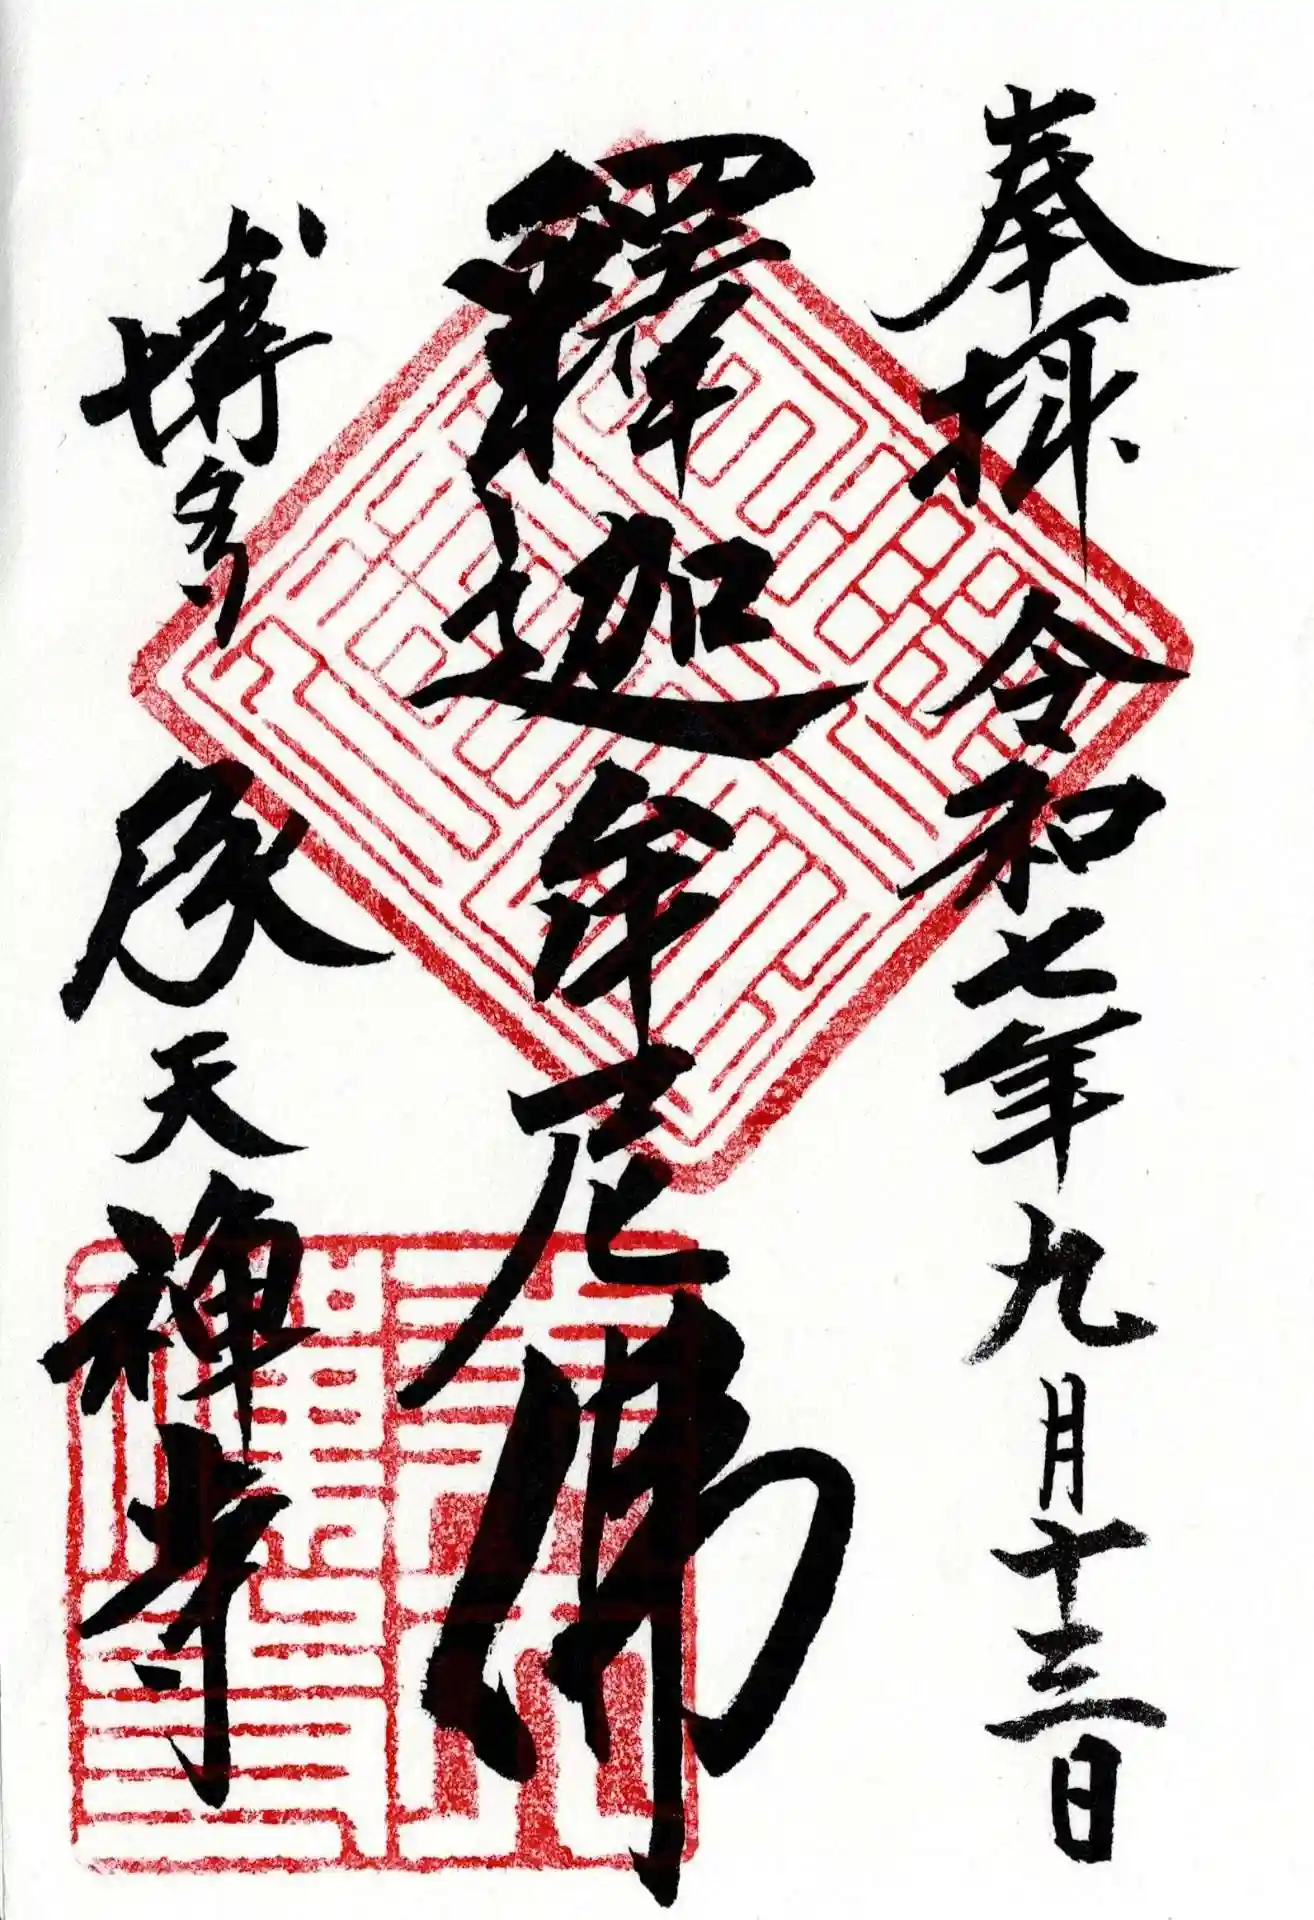 奉拝 令和七年九月十三日
釋迦牟尼佛
博多 承天禅寺